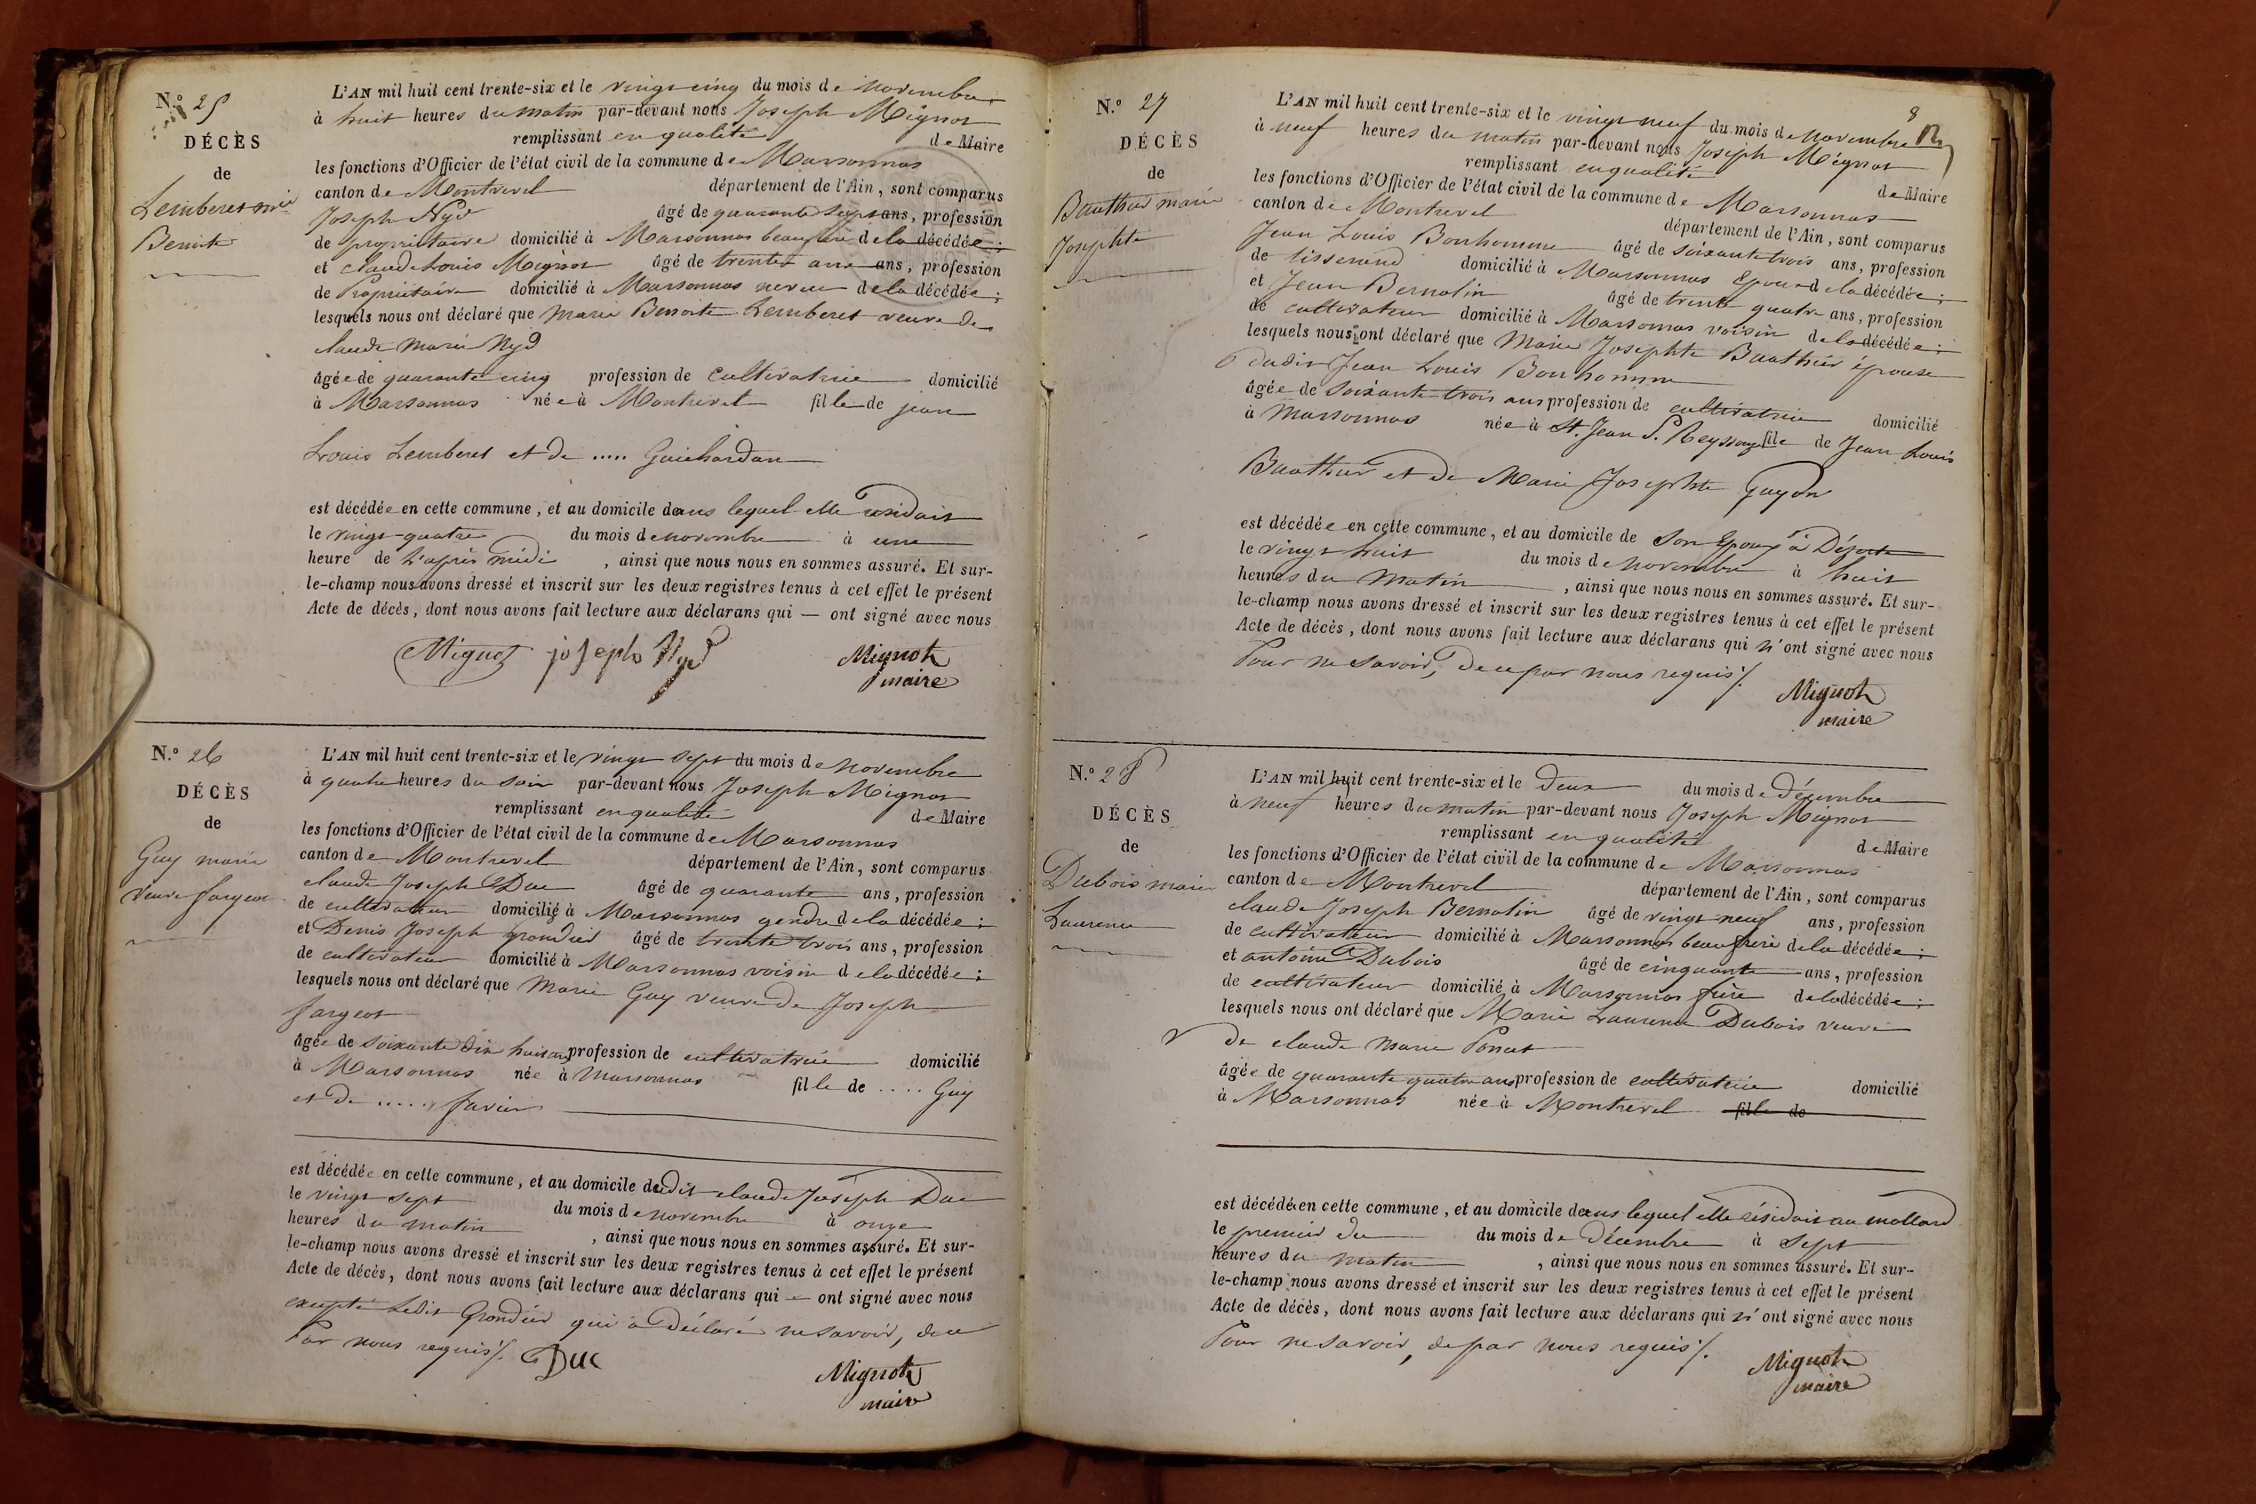 N.° 25
DÉCÈS
de
Lemberet mie
Benoite
L'AN mil huit cent trente-six et le vingt cinq du mois de novembre
à huit heures du matin par-devant nous Joseph Mignot
remplissant en qualité de Maire
les fonctions d'Officier de l'état civil de la commune de Marsonnas
canton de Montrevel département de l'Ain, sont comparus
Joseph Nyd âgé de quarante sept ans, profession
de propriétaire domicilié à Marsonnas beaufrère de la décédée;
et claude Louis Mignot âgé de trente ans, profession
de Propriétaire domicilié à Marsonnas neveu de la décédée;
lesquels nous ont déclaré que marie Benoite Lemberet veuve de
claude marie Nyd
âgée de quarante cinq profession de cultivatrice domicilié
à Marsonnas née à Montrevel fille de jean
Louis Lemberet et de ..... Guichardan
est décédée en cette commune, et au domicile dans lequel elle résidait
le vingt-quatre du mois de novembre à une
heure de l'après midi, ainsi que nous nous en sommes assuré. Et sur-
le-champ nous avons dressé et inscrit sur les deux registres tenus à cet effet le présent
Acte de décès, dont nous avons fait lecture aux déclarans qui — ont signé avec nous
Mignot joseph Nyd Mignot
maire
N.° 26
DÉCÈS
de
Guy marie
veuve fargeot
L'AN mil huit cent trente-six et le vingt sept du mois de novembre
à quatre heures du soir par-devant nous Joseph Mignot
remplissant en qualité de Maire
les fonctions d'Officier de l'état civil de la commune de Marsonnas
canton de Montrevel département de l'Ain, sont comparus
claude Joseph Duc âgé de quarante ans, profession
de cultivateur domicilié à Marsonnas gendre de la décédée;
et Denis Joseph Grondier âgé de trente trois ans, profession
de cultivateur domicilié à Marsonnas voisin de la décédée;
lesquels nous ont déclaré que Marie Guy veuve de Joseph
fargeot
âgée de soixante dix huit ans profession de cultivatrice domicilié
à Marsonnas née à Marsonnas fille de .... Guy
et de ..... favier
est décédée en cette commune, et au domicile dudit claude Joseph Duc
le vingt sept du mois de novembre à onze
heures du matin, ainsi que nous nous en sommes assuré. Et sur-
le-champ nous avons dressé et inscrit sur les deux registres tenus à cet effet le présent
Acte de décès, dont nous avons fait lecture aux déclarans qui — ont signé avec nous
excepté ledit Grondier qui a déclaré ne savoir, de ce
Par nous requis ∕.
Duc Mignot
maire
8
N.° 27
DÉCÈS
de
Bauthier marie
Josephte
L'AN mil huit cent trente-six et le vingt neuf du mois de novembre
à neuf heures du matin par-devant nous Joseph Mignot
remplissant en qualité de Maire
les fonctions d'Officier de l'état civil de la commune de Marsonnas
canton de Montrevel département de l'Ain, sont comparus
Jean Louis Bonhomme âgé de soixante trois ans, profession
de tisserand domicilié à Marsonnas Epoux de la décédée;
et Jean Bernolin âgé de trente quatre ans, profession
de cultivateur domicilié à Marsonnas voisin de la décédée;
lesquels nous ont déclaré que Marie Josephte Bauthier épouse
dudit Jean Louis Bonhomme
âgée de soixante trois ans profession de cultivatrice domicilié
à Marsonnas née à St. Jean S. Reyssouze fille de Jean Louis
Bauthier et de Marie Josephte Guydon
est décédée en cette commune, et au domicile de son Epoux à
le vingt huit du mois de novembre à huit
heures du Matin, ainsi que nous nous en sommes assuré. Et sur-
le-champ nous avons dressé et inscrit sur les deux registres tenus à cet effet le présent
Acte de décès, dont nous avons fait lecture aux déclarans qui n'ont signé avec nous
Pour ne savoir, de ce par nous requis ∕.
Mignot
maire
N.° 28
DÉCÈS
de
Dubois marie
Laurence
L'AN mil huit cent trente-six et le deux du mois de décembre
à neuf heures du matin par-devant nous Joseph Mignot
remplissant en qualité de Maire
les fonctions d'Officier de l'état civil de la commune de Marsonnas
canton de Montrevel département de l'Ain, sont comparus
claude Joseph Bernolin âgé de vingt neuf ans, profession
de cultivateur domicilié à Marsonnas beaufrère de la décédée;
et antoine Dubois âgé de cinquante ans, profession
de cultivateur domicilié à Marsonnas frère de la décédée;
lesquels nous ont déclaré que Marie Laurence Dubois veuve
de claude marie Ponsot
âgée de quarante quatre ans profession de cultivatrice domicilié
à Marsonnas née à Montrevel fille de
est décédée en cette commune, et au domicile dans lequel elle résidait au mollard
le premier du du mois de Décembre à sept
heures du matin, ainsi que nous nous en sommes assuré. Et sur-
le-champ nous avons dressé et inscrit sur les deux registres tenus à cet effet le présent
Acte de décès, dont nous avons fait lecture aux déclarans qui n'ont signé avec nous
Pour ne savoir, de par nous requis ∕.
Mignot
maire